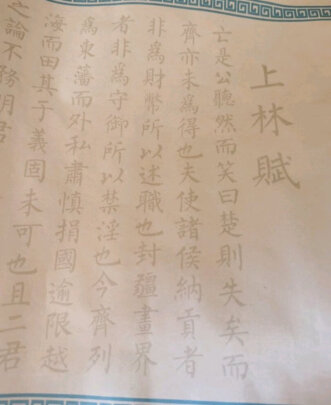 上林賦
亡是公聽然而笑曰楚則失矣而
齊亦未爲得也夫使諸侯納貢者
非爲財幣所以述職也封疆畫界
者非爲守御所以禁淫也今齊列
爲東藩而外私肅慎捐國逾限越
海而田其于義固未可也且二君
之論不務明君